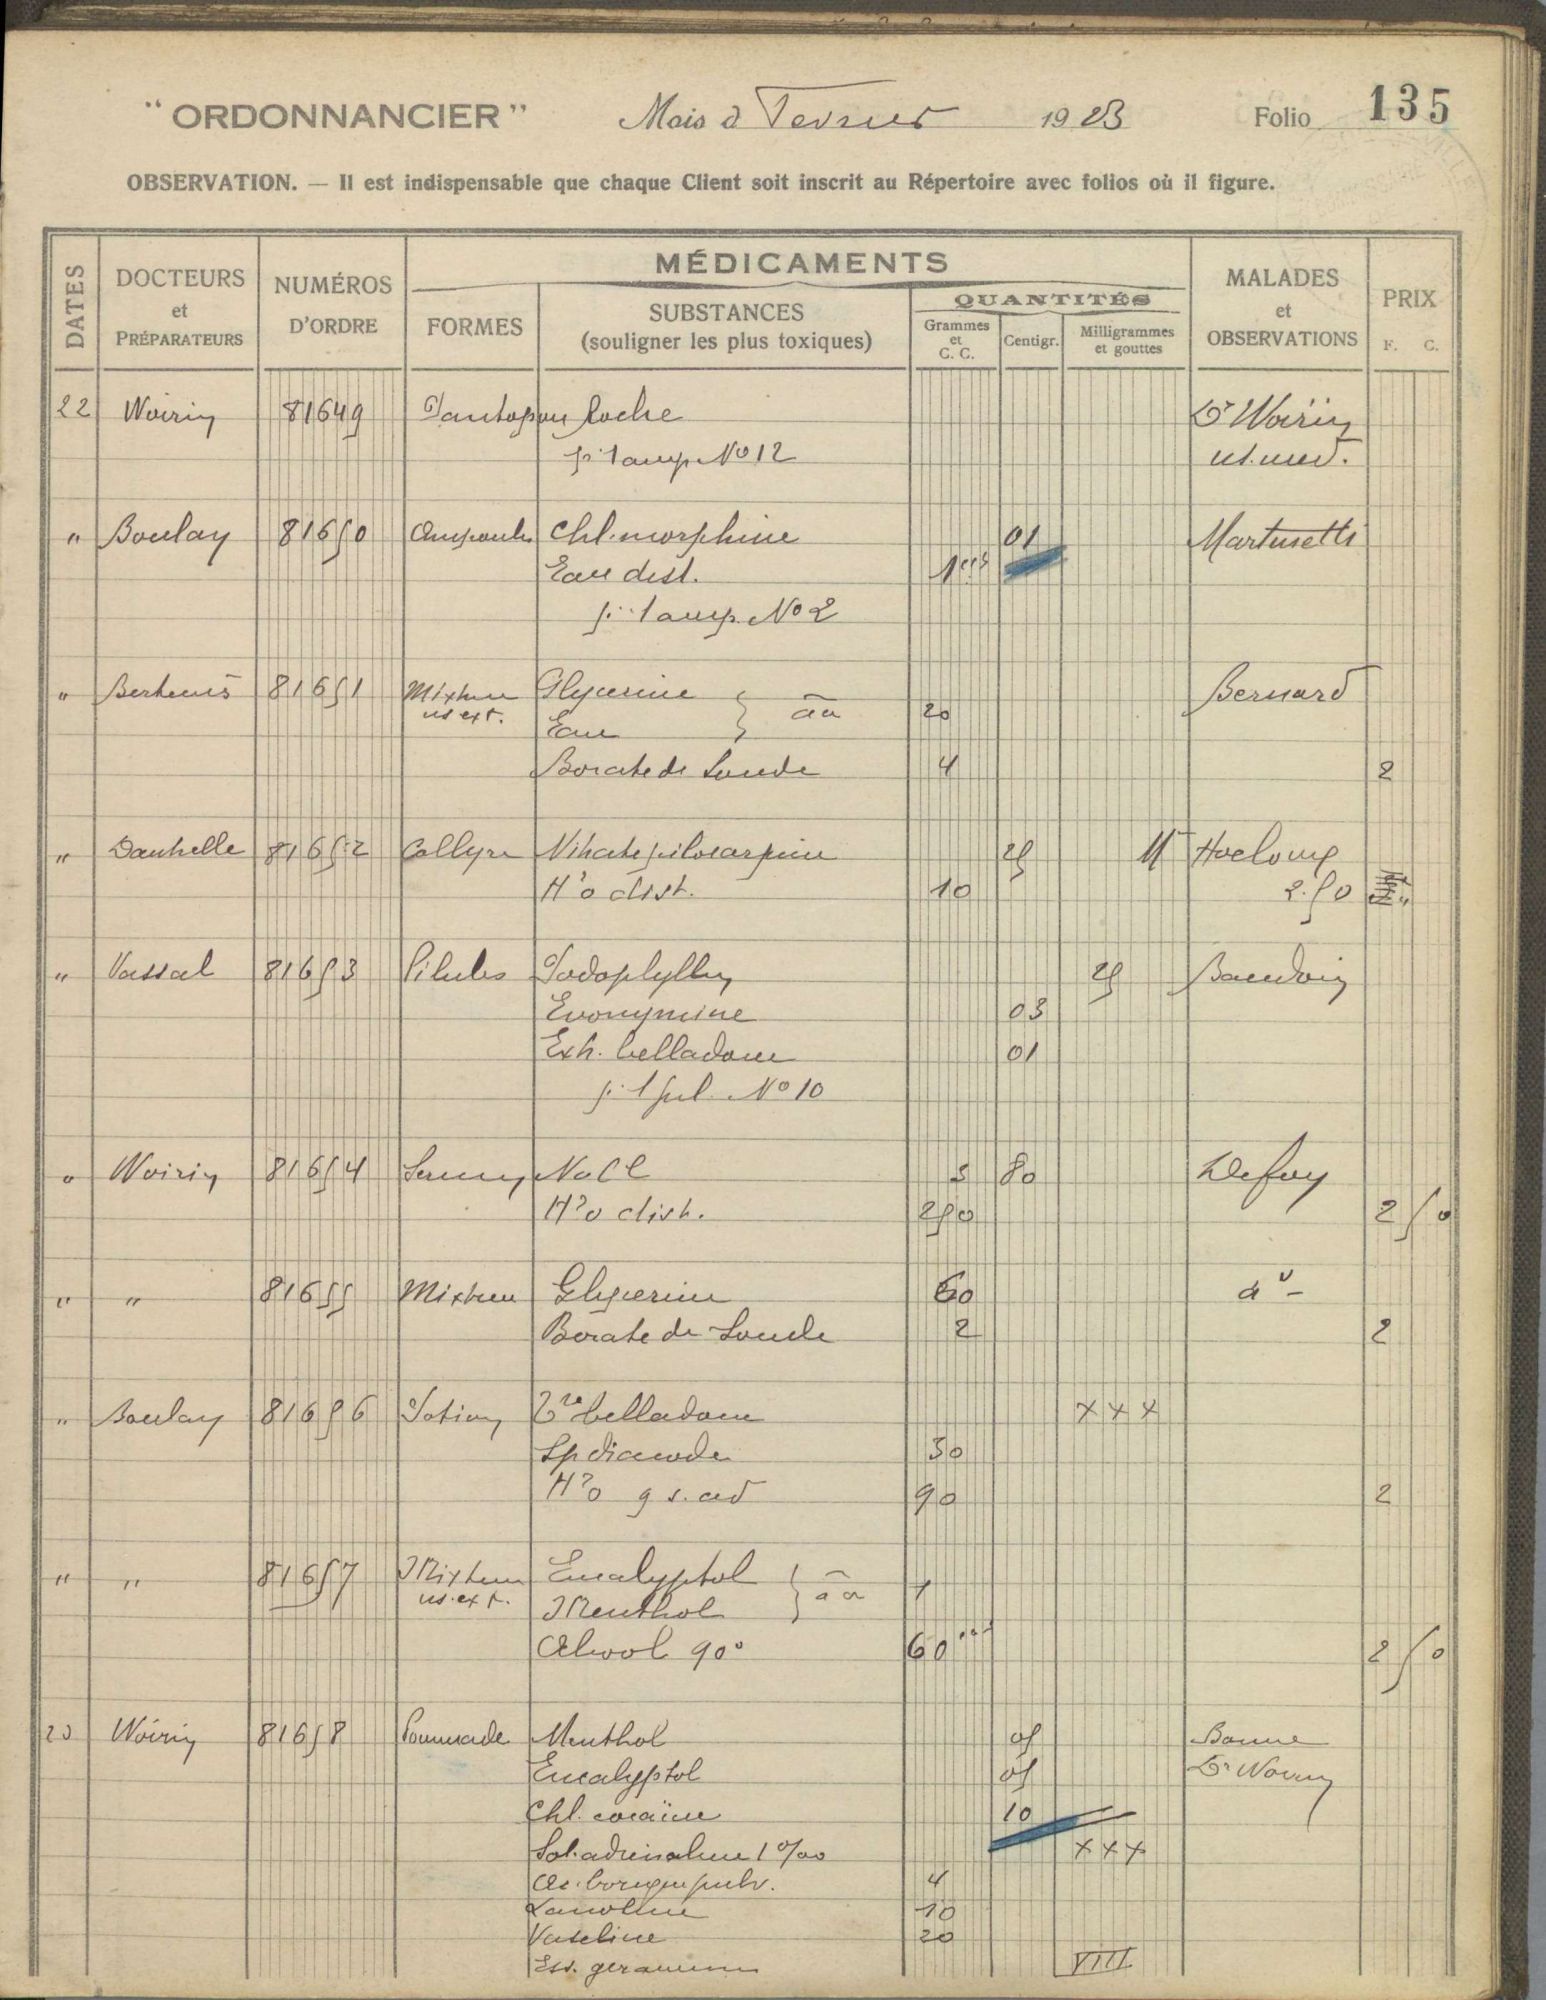 "ORDONNANCIER" Mois d Fevrier 1923 Folio 135
OBSERVATION. — Il est indispensable que chaque Client soit inscrit au Répertoire avec folios où il figure.
DATES
DOCTEURS et PRÉPARATEURS
NUMÉROS D'ORDRE
MÉDICAMENTS
FORMES
SUBSTANCES (souligner les plus toxiques)
QUANTITÉS
Grammes et C. C.
Centigr.
Milligrammes et gouttes
MALADES et OBSERVATIONS
PRIX
F. C.
22 Woirin 81649 Pantopon Roche Dr Woirin
p. 1 amp. No 12 us. med.
" Boulay 81650 Ampoules Chl. morphine 01 Martinetti
Eau dist. 1cc
p. 1 amp. No 2
" 81651 Mixture Glycerine Bernard
us ext. ãa 20
Eau
Borate de Soude 4 2
" Danhelle 81652 Collyre Nitrate pilocarpine 25
H2o dist. 10 2.50
" Vassal 81653 Pilules Podophyllin 25 Baudoin
Evonymine 03
Ext. belladone 01
p. 1 pil. No 10
" Woirin 81654 Serum NaCl 3 80 Defay
H2o dist. 250 2 50
" " 81655 Mixture Glycerine 60 do -
Borate de Soude 2 2
" Boulay 81656 Potion Tre belladone XXX
Sp diacode 30
H2o q s. ad 90 2
" " 81657 Mixture Eucalyptol
us. ext. ãa 1
Menthol
Alcool 90° 60 2 50
23 Woirin 81658 Pommade Menthol 05 Bonne
Eucalyptol 05 Dr Woirin
Chl. cocaïne 10
Sol. adrenaline 1 0/00 XXX
Ac. borique pulv. 4
Lanoline 10
Vaseline 20
Ess. geranium VIII